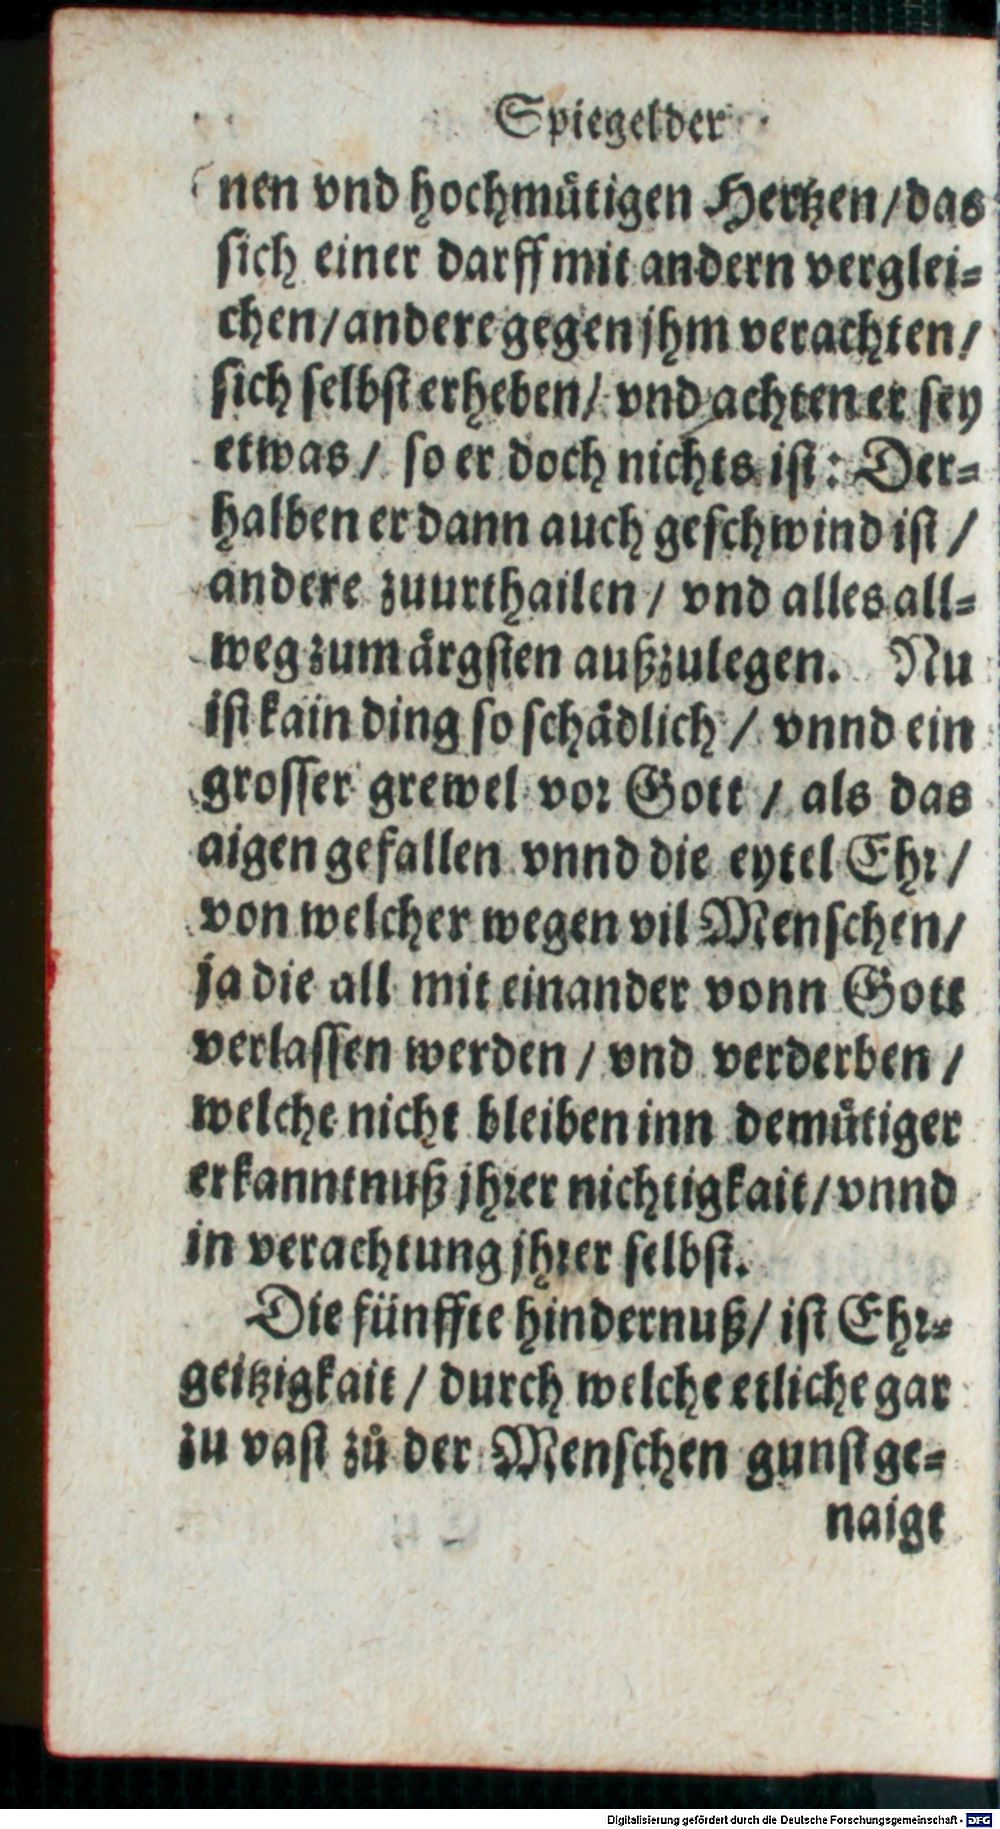 Spiegel der
nen vnd hochmuͤtigen Hertzen/das
sich einer darff mit andern verglei⸗
chen/andere gegen jhm verachten/
sich selbst erheben/ vnd achten er sey
etwas/ so er doch nichts ist: Der⸗
halben er dann auch geschwind ist/
andere zuurthailen/ vnd alles all⸗
weg zum aͤrgsten außzulegen. Nu
ist kain ding so schaͤdlich/ vnnd ein
grosser grewel vor Gott/ als das
aigen gefallen vnnd die eytel Ehr/
von welcher wegen vil Menschen/
ja die all mit einander vonn Gott
verlassen werden/ vnd verderben/
welche nicht bleiben inn demuͤtiger
erkanntnuß jhrer nichtigkait/vnnd
in verachtung jhrer selbst.
Die fünffte hindernuß/ ist Ehr⸗
geitzigkait/ durch welche etliche gar
zu vast zů der Menschen gunst ge⸗
naigt
Digitalisierung gefördert durch die Deutsche Forschungsgemeinschaft - DFG